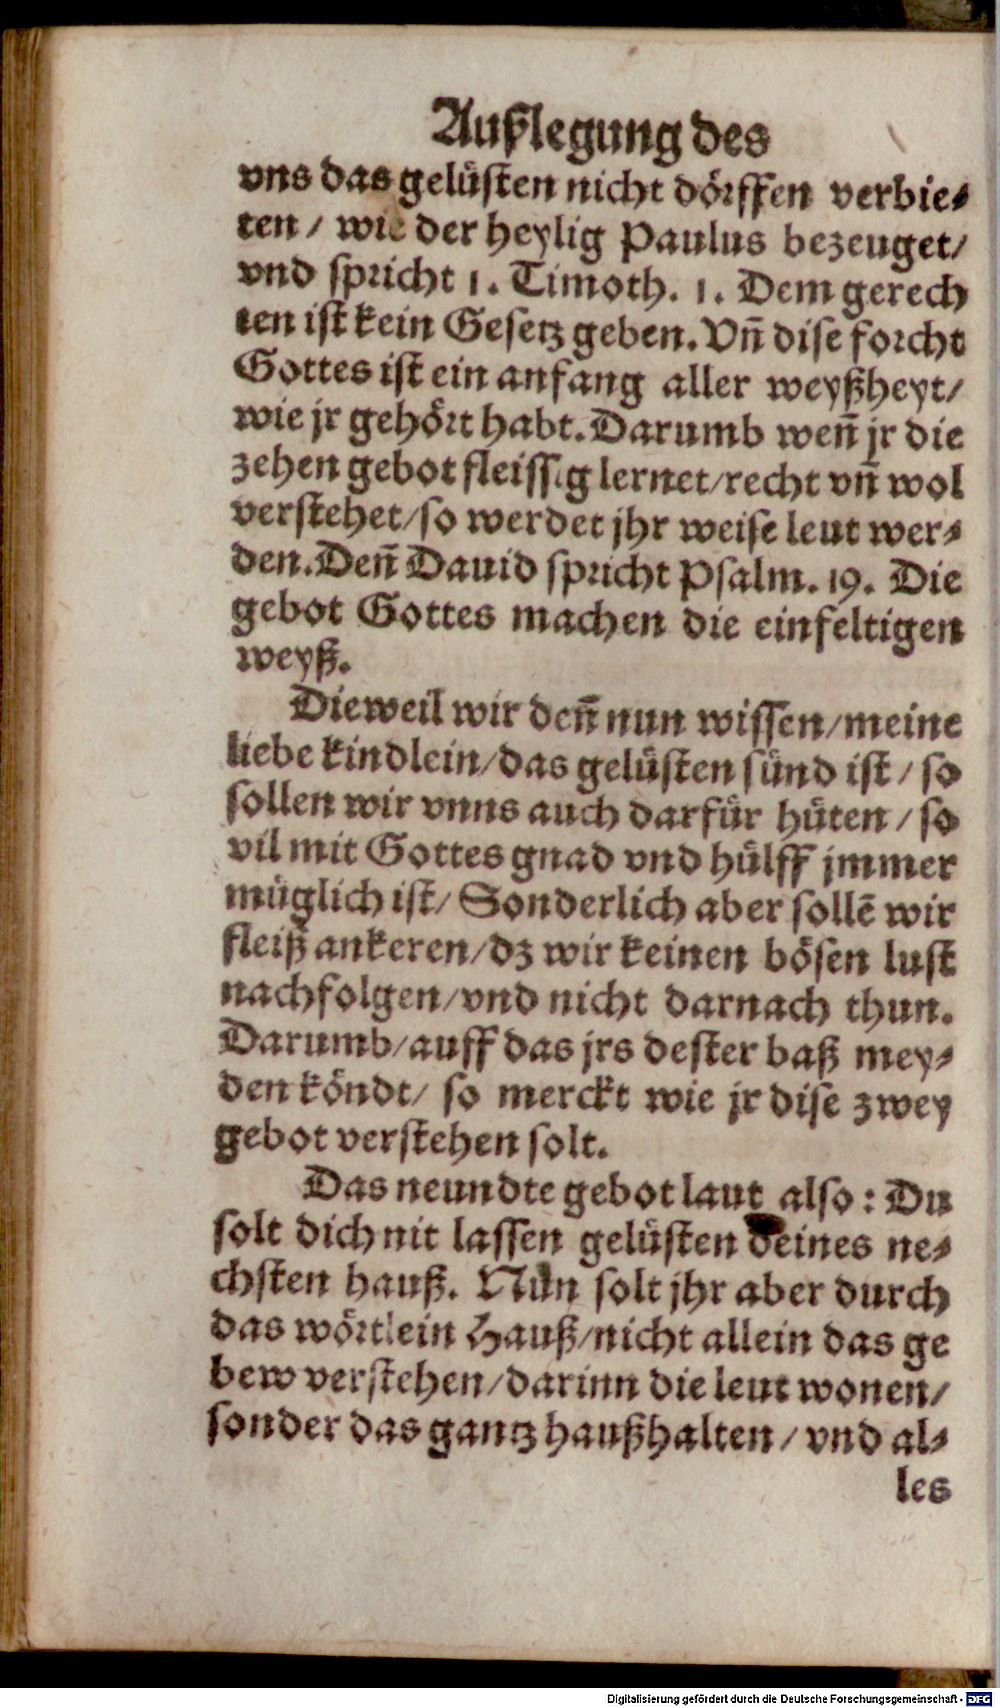 Außlegung des
vns das gelüsten nicht dörffen verbie⸗
ten / wie der heylig Paulus bezeuget/
vnd spricht 1. Timoth. 1. Dem gerech
ten ist kein Gesetz geben. Vn̄ dise forcht
Gottes ist ein anfang aller weyßheyt/
wie jr gehört habt. Darumb wen̄ jr die
zehen gebot fleissig lernet/recht vn̄ wol
verstehet/so werdet jhr weise leut wer⸗
den. Den̄ Dauid spricht Psalm. 19. Die
gebot Gottes machen die einfeltigen
weyß.
Dieweil wir den̄ nun wissen/meine
liebe kindlein/das gelüsten sünd ist / so
sollen wir vnns auch darfür hüten / so
vil mit Gottes gnad vnd hülff jmmer
müglich ist/ Sonderlich aber sollē wir
fleiß ankeren/dz wir keinen bösen lust
nachfolgen/vnd nicht darnach thun.
Darumb/auff das jrs dester baß mey⸗
den köndt/ so merckt wie jr dise zwey
gebot verstehen solt.
Das neundte gebot laut also: Du
solt dich nit lassen gelüsten deines ne⸗
chsten hauß. Nun solt jhr aber durch
das wörtlein Hauß/nicht allein das ge
bew verstehen/darinn die leut wonen/
sonder das gantz haußhalten / vnd al⸗
les
Digitalisierung gefördert durch die Deutsche Forschungsgemeinschaft - DFG